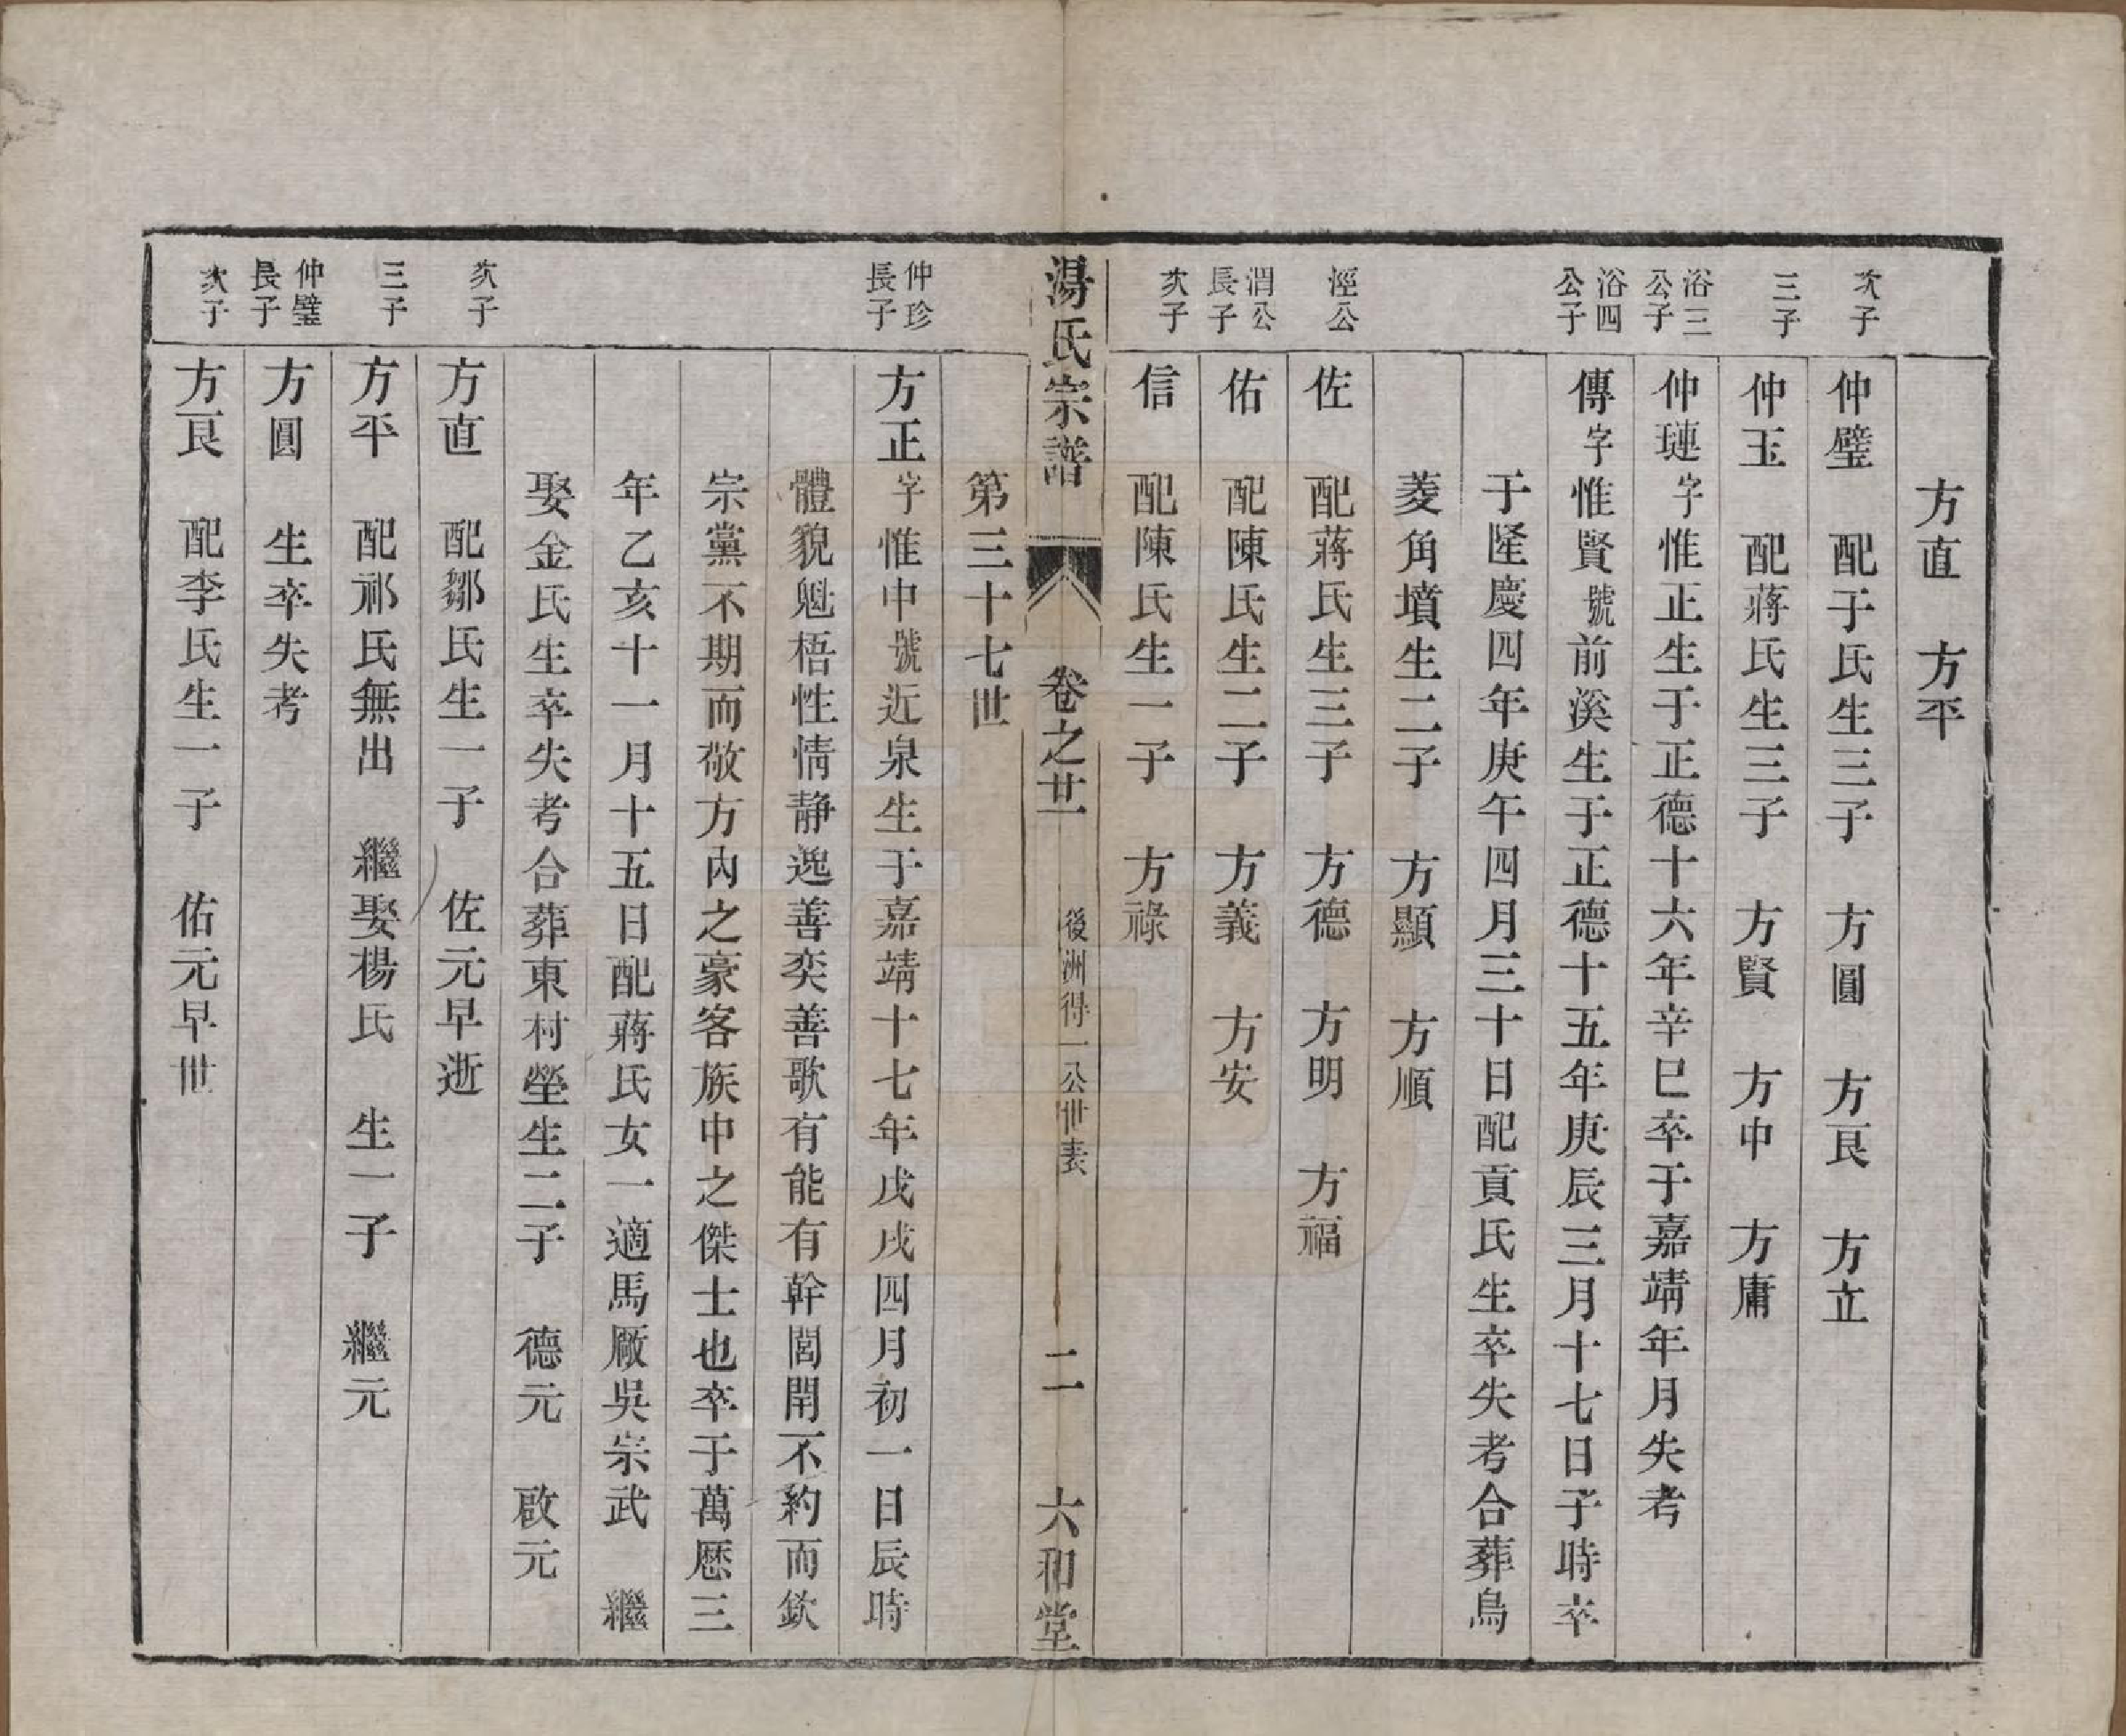 方直　方平
次子　仲璧　配于氏生三子　方圓　方艮　方立
三子　仲玉　配蔣氏生三子　方賢　方中　方庸
浴三公子　仲璉字惟正生于正德十六年辛巳卒于嘉靖年月失考
浴四公子　傳字惟賢號前溪生于正德十五年庚辰三月十七日子時卒
于隆慶四年庚午四月三十日配貢氏生卒失考合葬鳥
菱角墳生二子　方顯　方順
涇公　佐　配蔣氏生三子　方德　方明　方福
渭公長子　佑　配陳氏生二子　方義　方安
次子　信　配陳氏生一子　方祿
湯氏宗譜　卷之廿一　後洲得一公世表　二　六和堂
第三十七世
仲珍長子　方正字惟中號近泉生于嘉靖十七年戊戌四月初一日辰時
體貌魁梧性情静逸善奕善歌有能有幹閭閈不約而欽
宗黨不期而敬方內之豪客族中之傑士也卒于萬厯三
年乙亥十一月十五日配蔣氏女一適馬厰吳宗武　繼
娶金氏生卒失考合葬東村塋生二子　德元　啟元
次子　方直　配鄒氏生一子　佐元早逝
三子　方平　配祁氏無出　繼娶楊氏　生一子　繼元
仲璧長子　方圓　生卒失考
次子　方艮　配李氏生一子　佑元早世